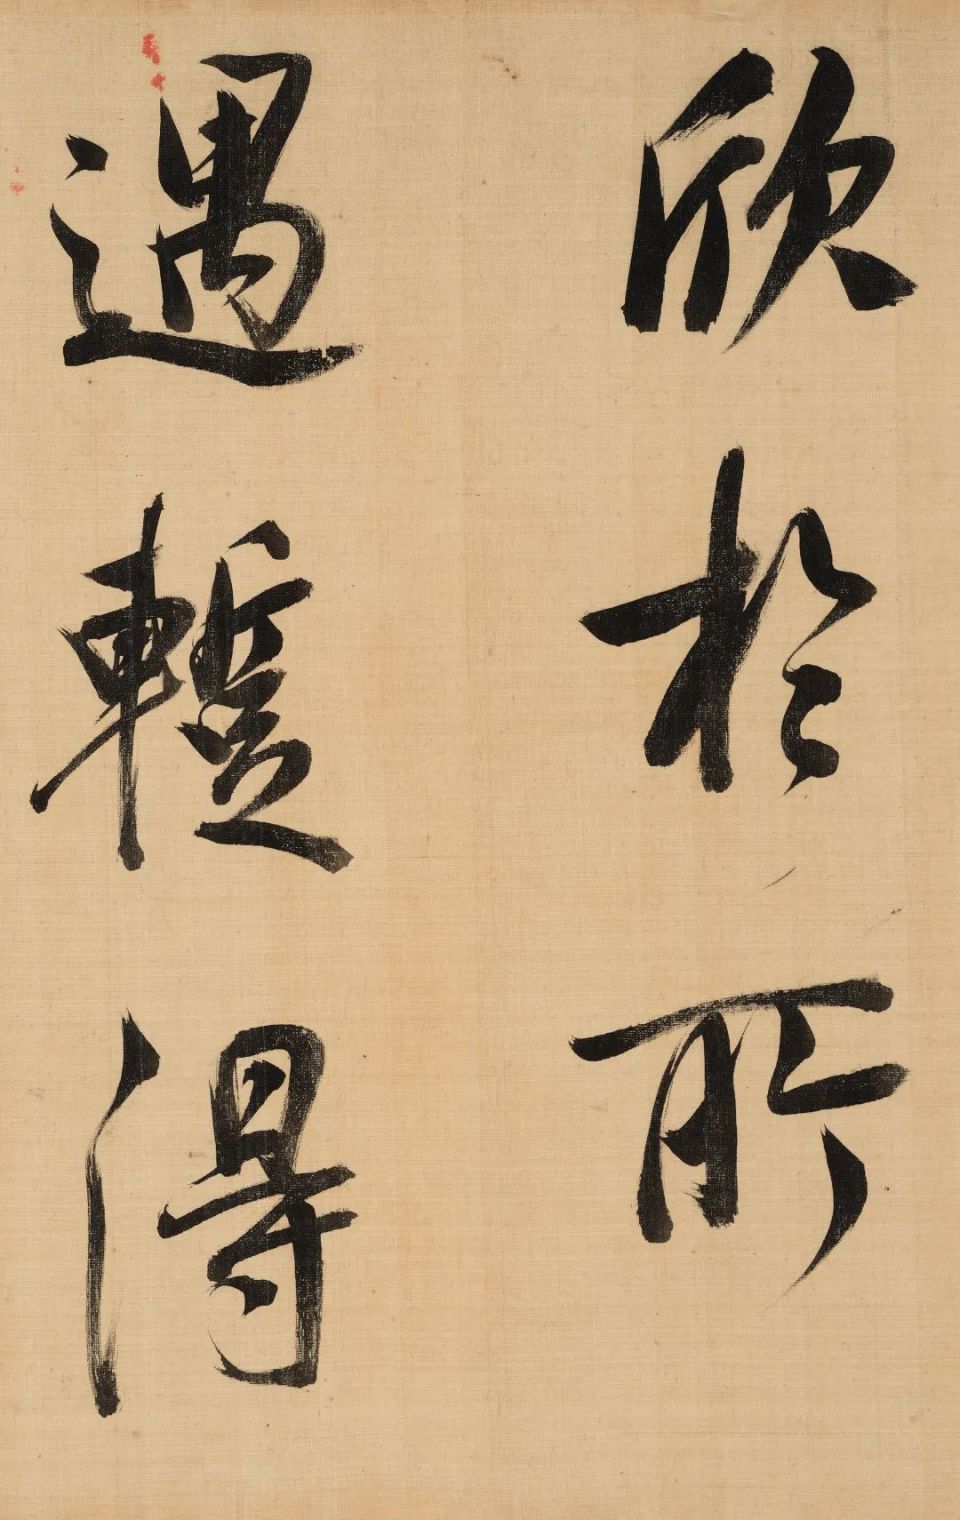 欣於所
遇暫得